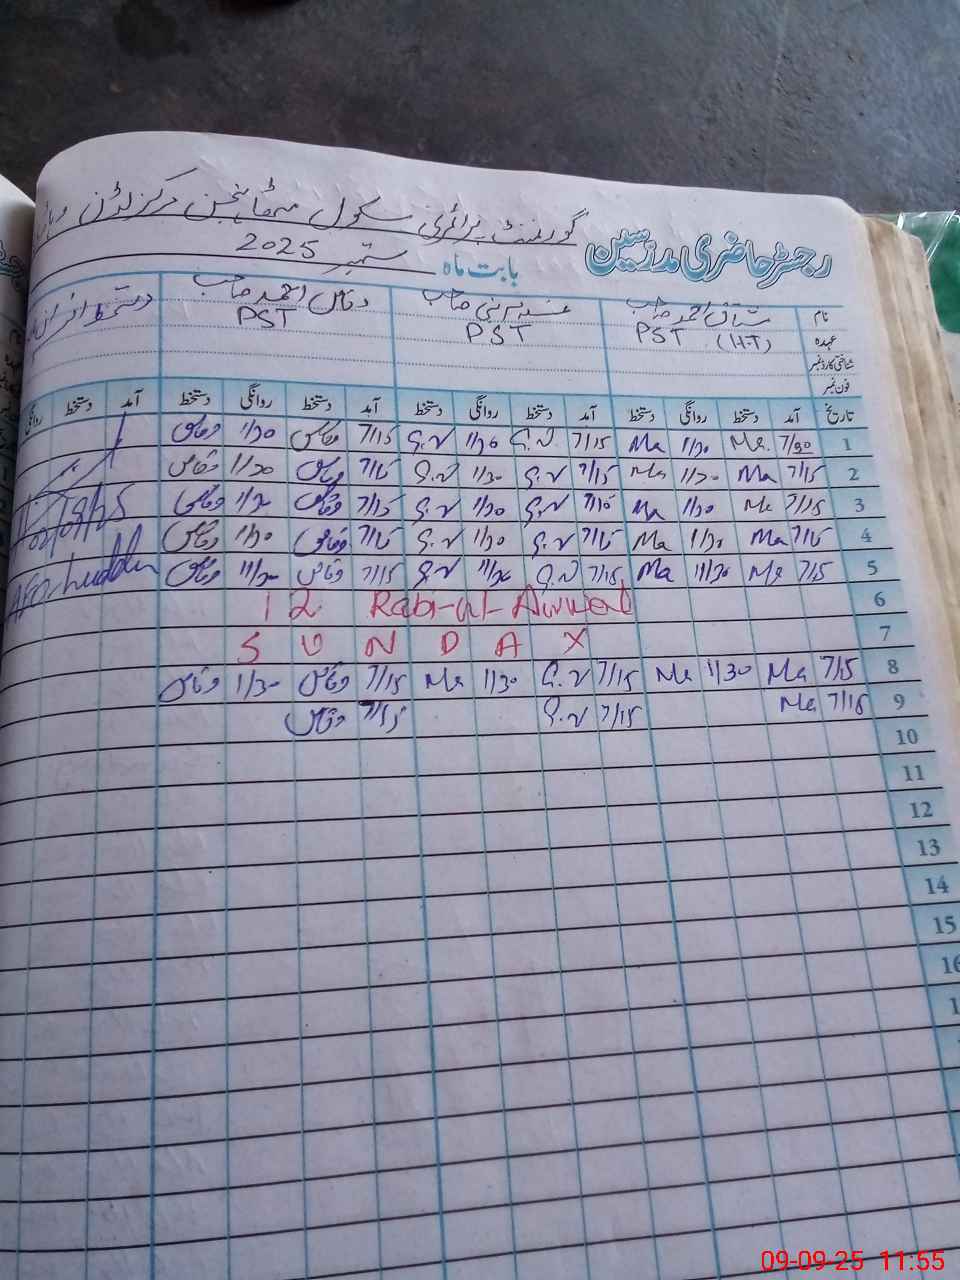 رجسٹر حاضری مدرسین گورنمنٹ پرائمری سکول مرکز لڈن
بابت ماہ ستمبر 2025
نام مشتاق احمد صاحب وقاص احمد صاحب
عہدہ PST (H.T) PST PST
شناختی کارڈ نمبر
فون نمبر
تاریخ آمد دستخط روانگی دستخط آمد دستخط روانگی دستخط آمد دستخط روانگی دستخط آمد دستخط روانگی
1 7/30 Ma 1/30 Ma 7/15 1/30 7/15 وقاص 1/30 وقاص
2 7/15 Ma 1/30 Ma 7/15 1/30 7/15 وقاص 1/30 وقاص
3 7/15 Ma 1/30 Ma 7/15 1/30 7/15 وقاص 1/30 وقاص
4 7/15 Ma 1/30 Ma 7/15 1/30 7/15 وقاص 1/30 وقاص
5 7/15 Ma 11/30 Ma 7/15 11/30 7/15 وقاص 11/30 وقاص
6 12 Rabi-ul-Awwal
7 SUNDAY
8 7/15 Ma 1/30 Ma 7/15 1/30 Ma 7/15 وقاص 1/30 وقاص
9 7/15 Ma 7/15 7/15 وقاص
10
11
12
13
14
15
16
09-09-25 11:55